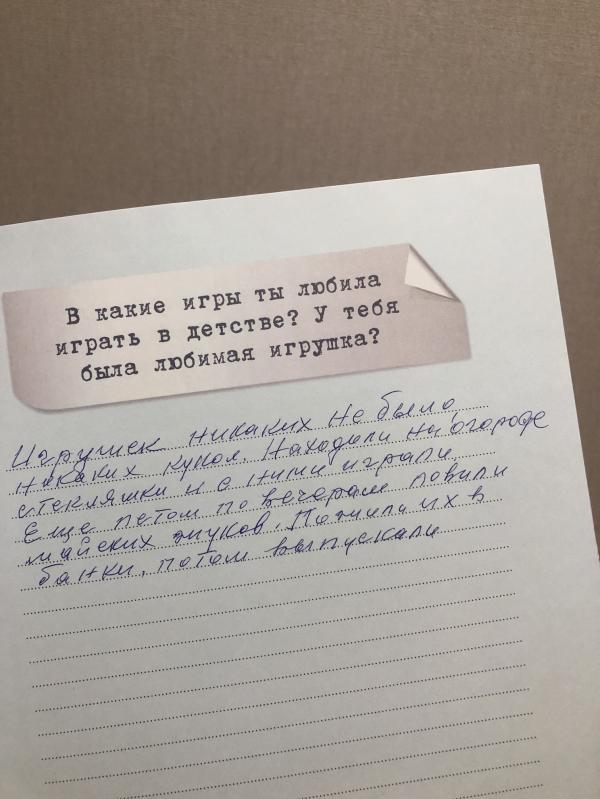 В какие игры ты любила
играть в детстве? У тебя
была любимая игрушка?
Игрушек никаких не было
никаких кукол. Находили на огороде
стекляшки и с ними играли.
Еще летом по вечерам ловили
майских жуков. Ложили их в
банки, потом выпускали